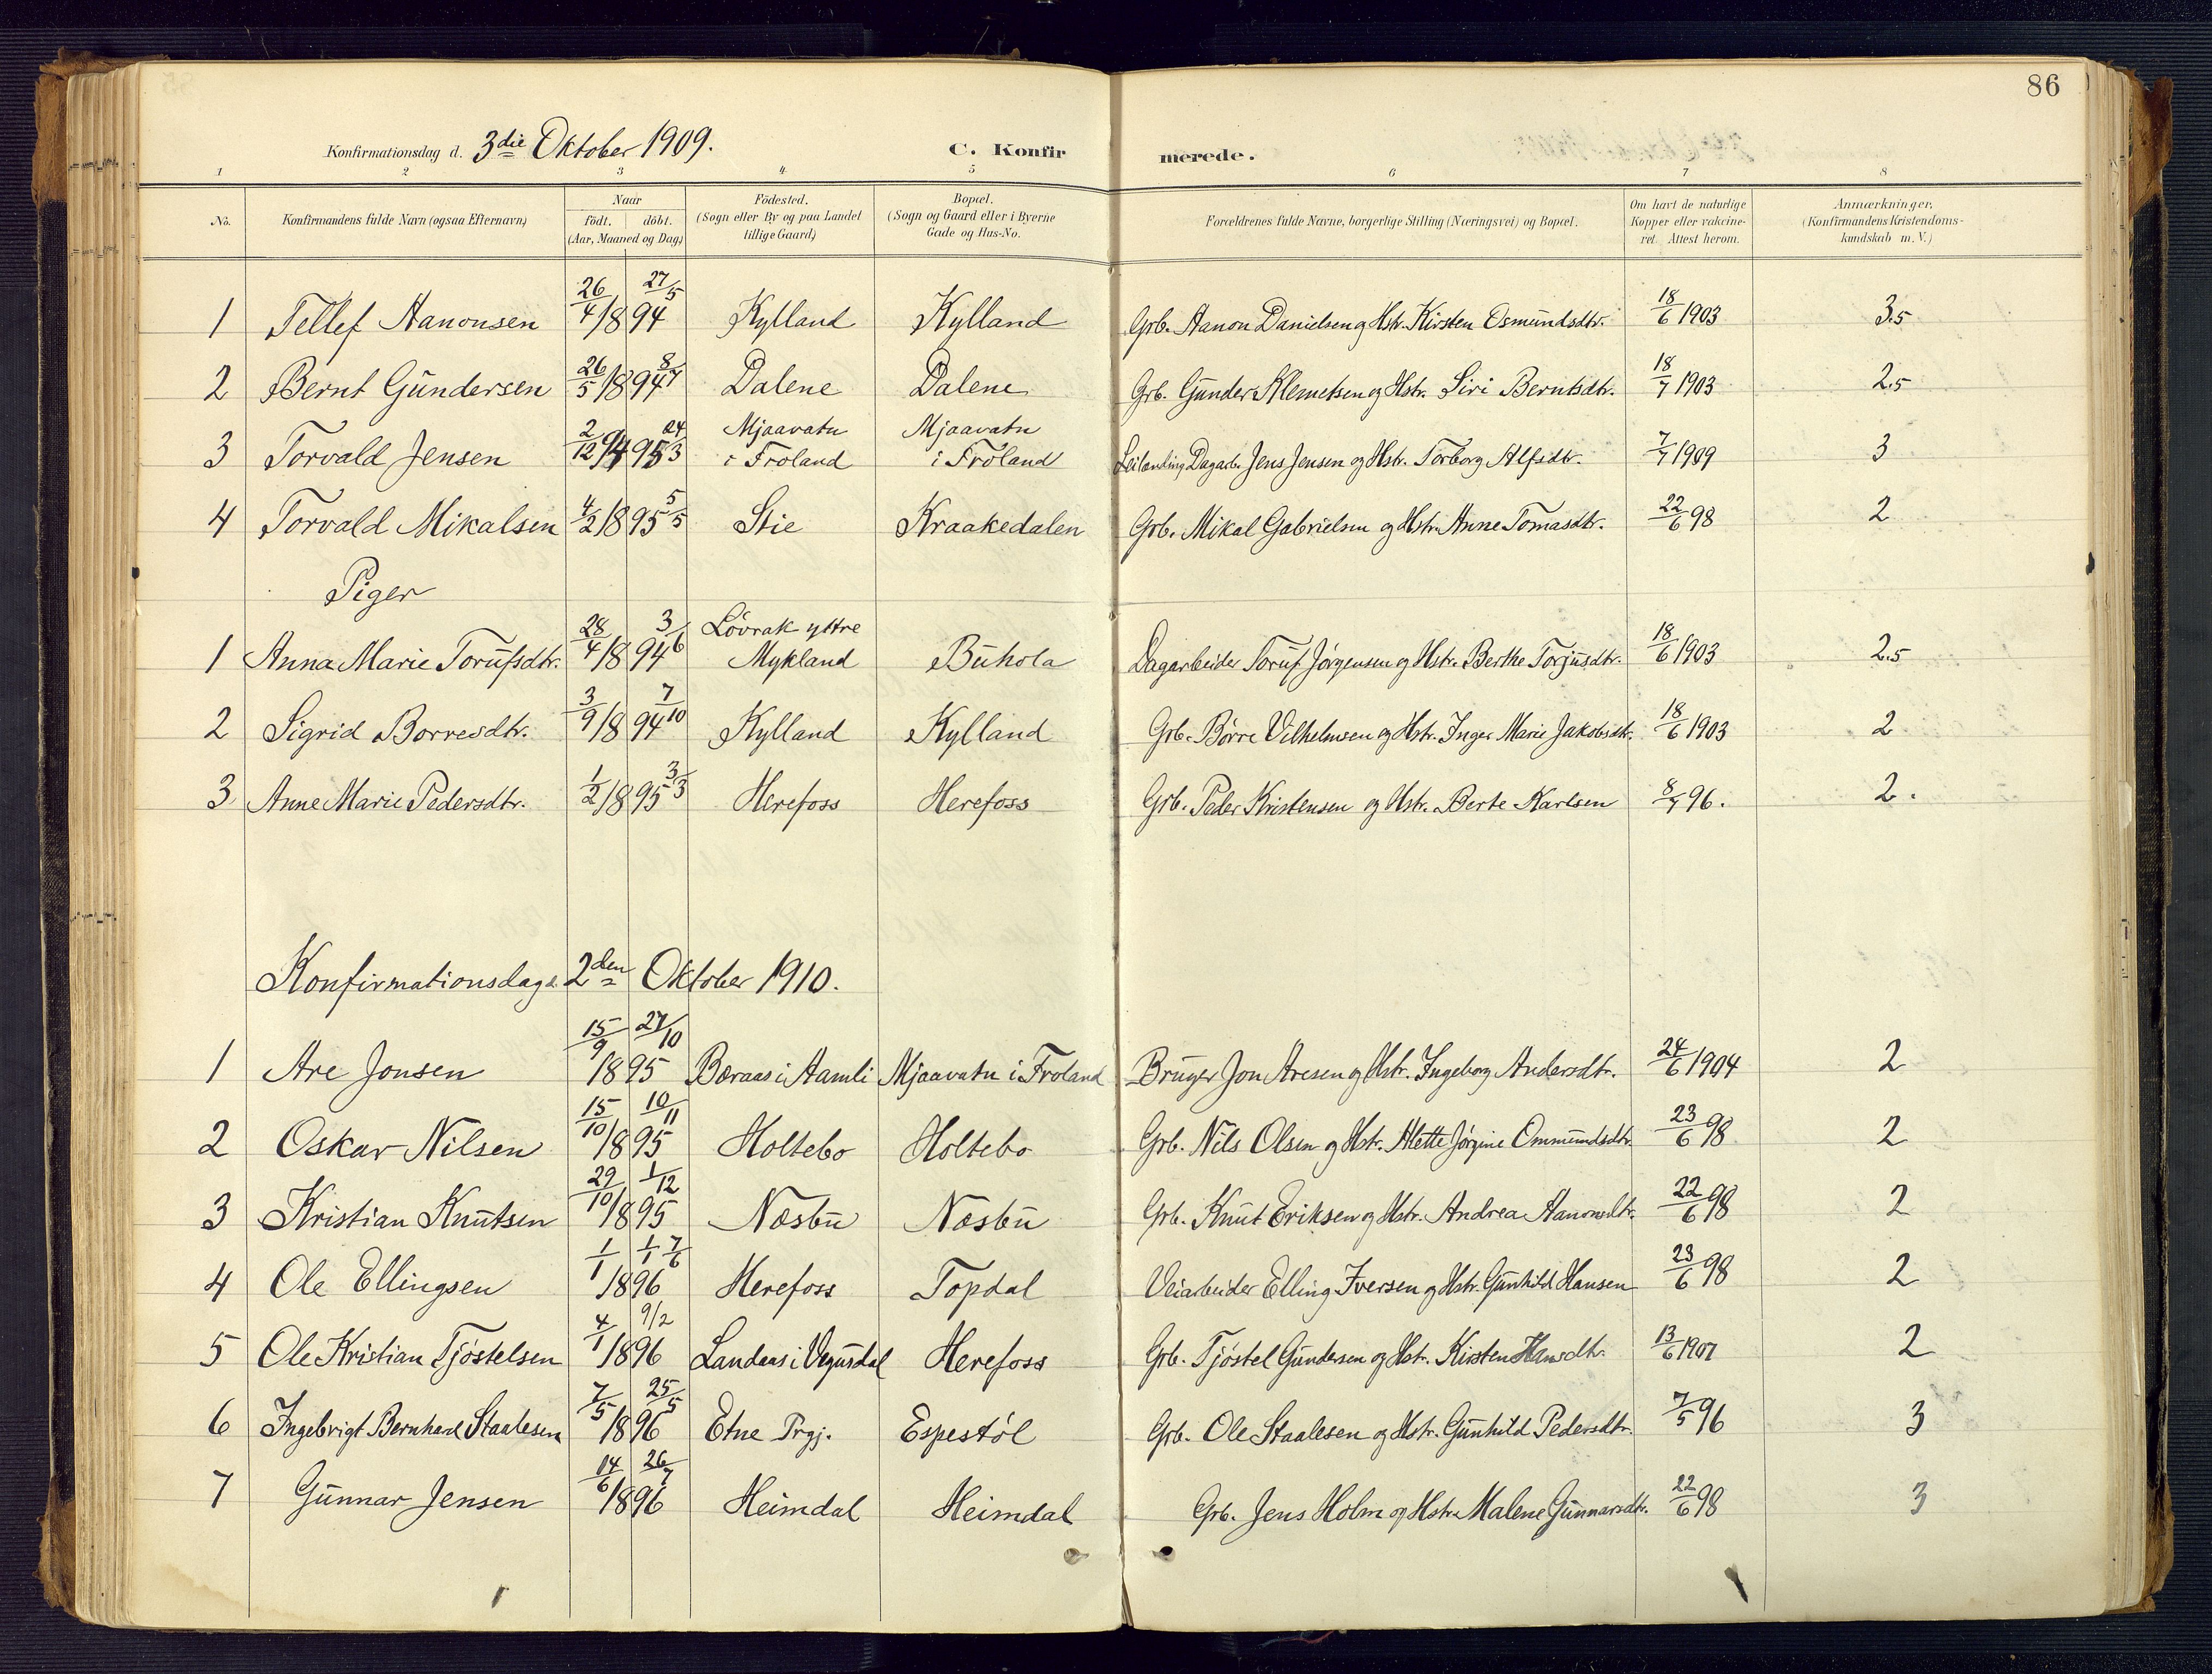 86
Konfirmationsdag d. 3die Oktober 1909. C. Konfirmerede.
1 2 3 4 5 6 7 8
No. Konfirmandens fulde Navn (ogsaa Efternavn) Naar födt. döbt. (Aar, Maaned og Dag) Födested. (Sogn eller By og paa Landet tillige Gaard) Bopæl. (Sogn og Gaard eller i Byerne Gade og Hus-No. Forældrenes fulde Navne, borgerlige Stilling (Næringsvei) og Bopæl. Om havt de naturlige Kopper eller vakcineret. Attest herom. Anmærkninger. (Konfirmandens Kristendomskundskab m. V.)
1 Tellef Aanonsen 26/4 1894 27/5 Kylland Kylland Grb. Aanon Danielsen og Hstr. Kirsten Osmundsdtr. 18/6 1903 3.5
2 Bernt Gundersen 26/5 1894 8/7 Dalene Dalene Grb. Gunder Klemetsen og Hstr. Siri Berntsdtr. 18/7 1903 2.5
3 Torvald Jensen 2/12 94 95 24/3 Mjaavatn i Froland Mjaavatn i Froland Leilænding, Dagarb. Jens Jensen og Hstr. Torborg Alfsdtr. 7/7 1909 3
4 Torvald Mikalsen 4/2 1895 5/5 Stie Kraakedalen Grb. Mikal Gabrielsen og Hstr. Anne Tomasdtr. 22/6 98 2
Piger
1 Anna Marie Torufsdtr. 28/4 1894 3/6 Lövrak yttre Mykland Buhola Dagarbeider Toruf Jörgensen og Hstr. Berthe Torjusdtr. 18/6 1903 2.5
2 Sigrid Borresdtr. 3/9 1894 7/10 Kylland Kylland Grb. Börre Vilhelmsen og Hstr. Inger Marie Jakobsdtr. 18/6 1903 2
3 Anne Marie Pedersdtr. 1/2 1895 3/3 Herefoss Herefoss Grb. Peder Kristensen og Hstr. Berte Karlsen 8/7 96. 2.
Konfirmationsdag d. 2den Oktober 1910.
1 Are Jonsen 15/9 1895 27/10 Beraas i Aamli Mjaavatn i Froland Bruger Jon Aresen og Hstr. Ingeborg Andersdtr. 24/6 1904 2
2 Oskar Nilsen 15/10 1895 10/11 Holtebo Holtebo Grb. Nils Olsen og Hstr. Alette Jörgine Ommundsdtr. 23/6 98 2
3 Kristian Knutsen 29/10 1895 1/12 Næsbu Næsbu Grb. Knut Eriksen og Hstr. Andrea Aanonsdtr. 22/6 98 2
4 Ole Ellingsen 1/1 1896 1/1 7/6 Herefoss Topdal Veiarbeider Elling Iversen og Hstr. Gunhild Hansen 23/6 98 2
5 Ole Kristian Tjöstelsen 4/1 1896 9/2 Landaas i Vegusdal Herefoss Grb. Tjöstel Gundersen og Hstr. Kirsten Hansdtr. 13/6 1907 2
6 Ingebrigt Bernhard Staalesen 7/5 1896 25/5 Etne Prgj. Espestöl Grb. Ole Staalesen og Hstr. Gunhild Pedersdtr. 7/5 96 3
7 Gunnar Jensen 14/6 1896 26/7 Heimdal Heimdal Grb. Jens Holm og Hstr. Malene Gunnarsdtr. 22/6 98 3